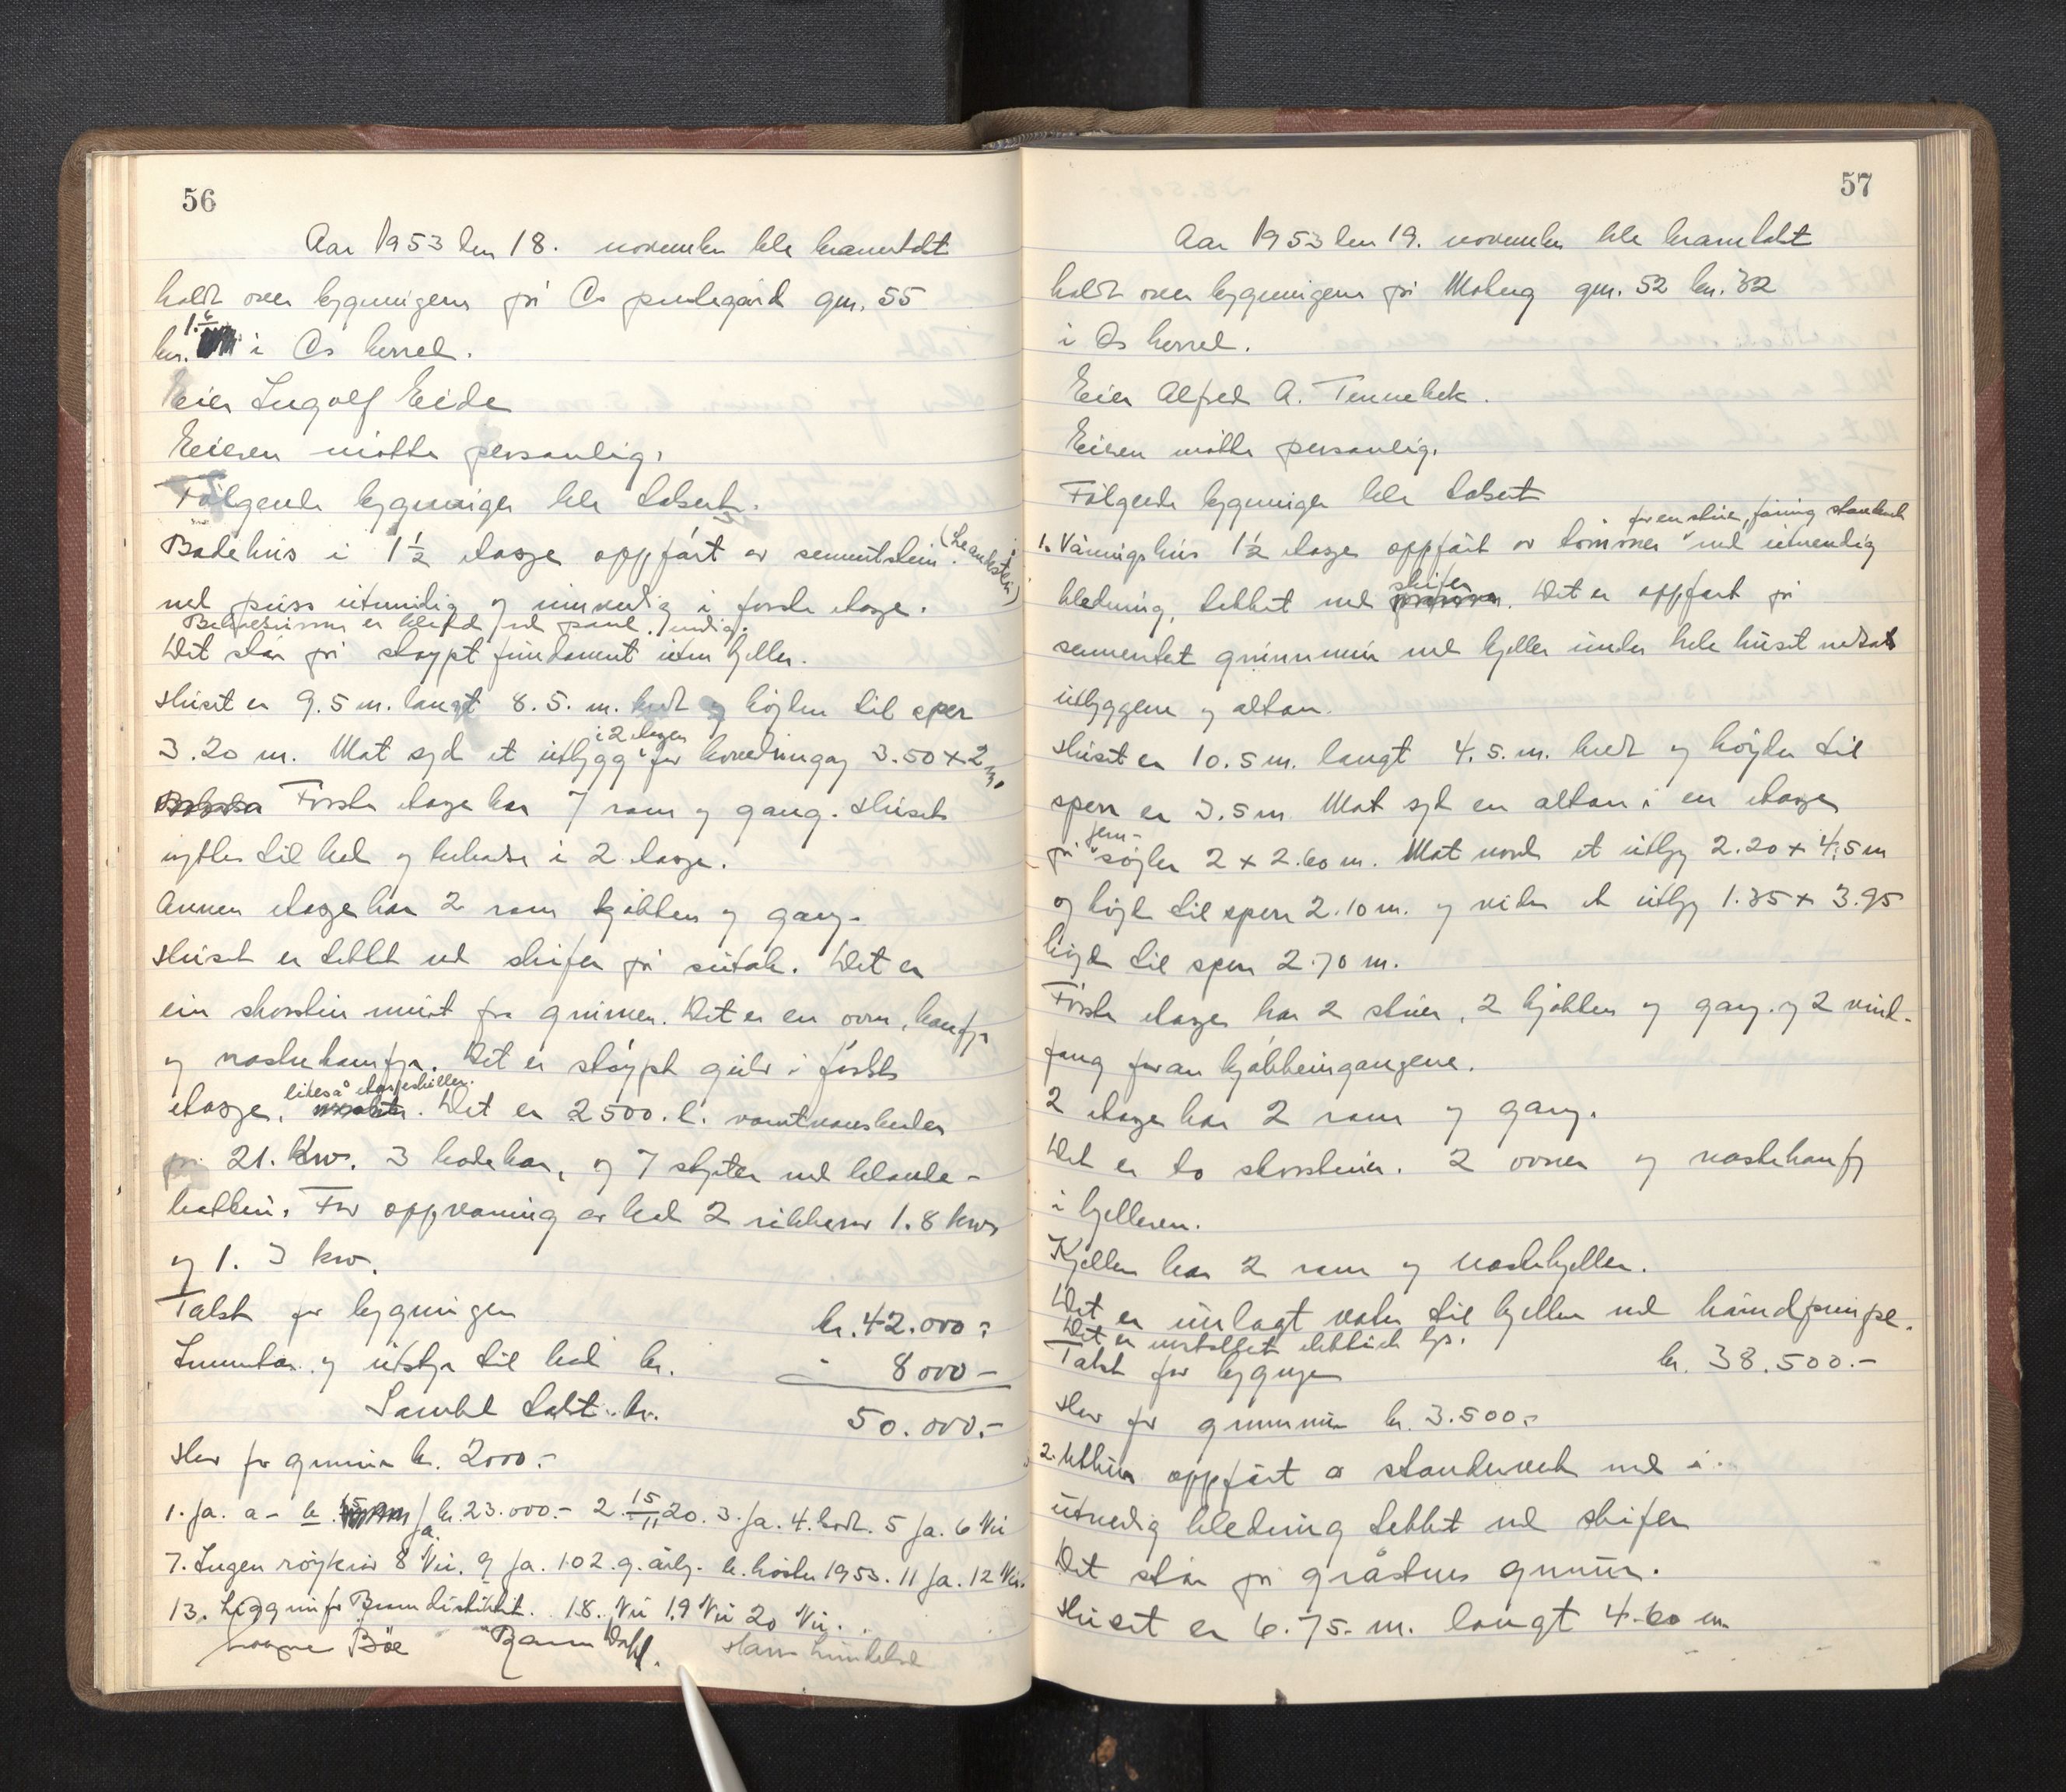 56
Aar 1953 den 18. november ble branntakt
holdt over bygningene på Os prestegård gnr. 55
bnr. 1.6 i Os herred.
Eier Ingolf Eide
Eieren møtte personlig.
Følgende bygninger ble taksert.
Badehus i 1½ etasje oppført av sementstein.
med puss utvendig og innvendig i første etasje.
Det står på støypt fundament uten kjeller.
Huset er 9.5 m. langt 8.5. m. bredt og højden til sper
i 2 etasjen
3.20 m. Mot syd et utbygg for hovedingang 3.50 x 2 m.
Første etasje har 7 rom og gang. Huset
nyttes til bad og bebodd i 2 etasje.
Annen etasje har 2 rom kjøkken og gang.
Huset er tekket med skifer på sutak. Det er
ein skorstein murt fra grunnen. Det er en ovn, komfyr
og vaskekomfyr. Det er støypt gulv i første
likeså etasjeskiller.
etasje. Det er 2500. l. varmtvannsbereder
på 21. Kw. 3 badekar, og 7 dusjer med blande-
batteri. For oppvarming av bad 2 1.8 kw
og 1. 3 kw.
Takst for bygningen kr. 42.000:-
Inventar og utstyr til bad kr. - 8000 -
Samlet takst kr. 50.000.-
Herav for grunnmur kr. 2000.-
1. Ja. a - b. Ja kr. 23.000.- 2. 15/11 20. 3. Ja. 4. bra. 5 Ja. 6 Nei
7. Ingen røykrør 8 Nei. 9 Ja. 10 2. g. årlig. b. høsten 1953. 11 Ja. 12 Nei.
13. Ligg innf. Branndistriktet. 18. Nei 19 Nei 20 Nei.
Bøe Dahl. Hans
57
Aar 1953 den 19. november ble branntakt
holdt over bygningene på Moberg gnr. 52 bnr. 32
i Os herred.
Eier Alfred A. Tennebek.
Eieren møtte personlig.
Følgende bygninger ble taksert
for en stue, føring standverk
1. Våningshus 1½ etasje oppført av tømmer med utvendig
skifer
kledning, tekket med. Det er oppført på
sementert grunnmur med kjeller under hele huset undtatt
utbyggene og altan.
Huset er 10.5 m. langt 4.5. m. bredt og højden til
sperr er 3.5 m Mot syd en altan i en etasje
jern-
på søyler 2 x 2.60 m. Mot nord et utbygg 2.20 x 4.5 m
og højde til sperr 2.10 m. og videre et utbygg 1.35 x 3.95
højde til sperr 2.70 m.
Første etasje har 2 stuer, 2 kjøkken og gang. og 2 vind-
fang foran kjøkkeningangene.
2 etasje har 2 rom og gang.
Det er to skorsteiner. 2 ovner og vaskekomfyr
i kjelleren.
Kjeller har 2 rom og vaskekjeller.
Det er innlagt vatn til kjeller med håndpumpe.
Det er installert elektrisk lys.
Takst for bygningen kr. 38.500.-
Herav for grunnmur kr. 3.500.-
2. Uthus oppført av standverk med
utvendig kledning tekket med skifer
Det står på gråsteins grunnmur.
Huset er 6.75. m. langt 4.60 m.